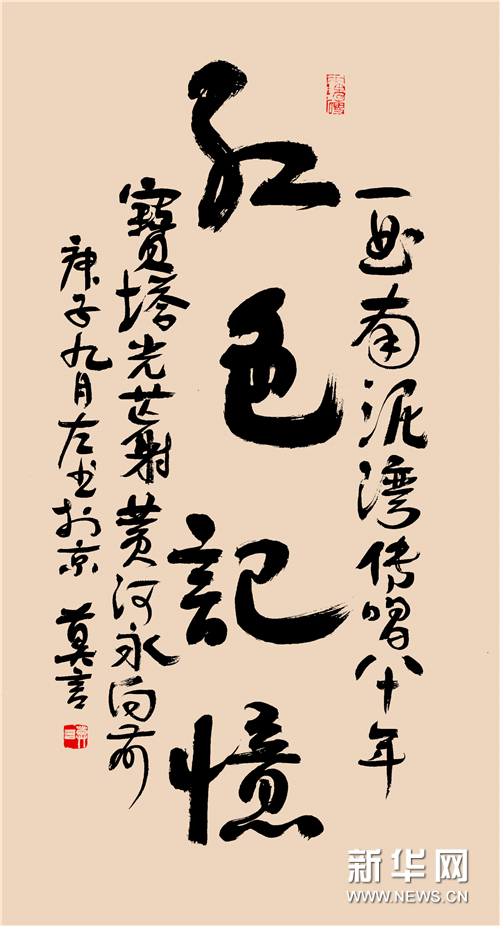 一曲南泥湾传唱八十年
红色記憶
寶塔光芒射黄河永向前
庚子九月左书於京 莫言
新华网
WWW.NEWS.CN